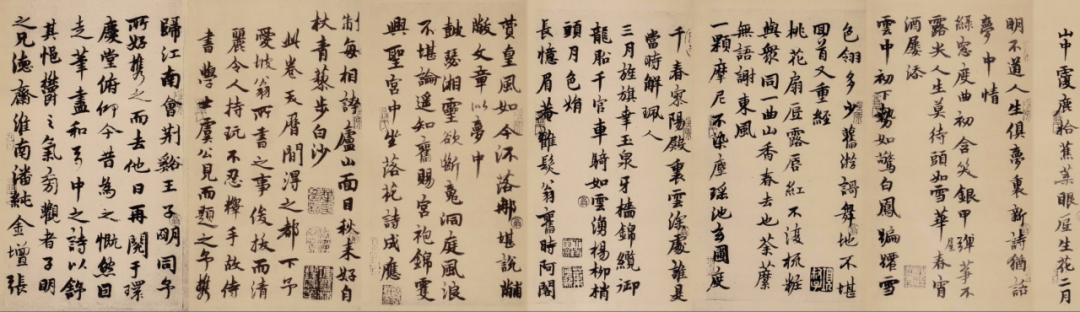 山中覆鹿拾蕉葉眼眚生花二月
明不道人生俱夢裏新詩猶話
夢中情
絲窓度曲初含笑銀甲彈箏不
露尖人生莫待頭如雪華屋春宵
酒屢添
雲中初下勢如驚白鳳蹁躚雪
色翎多少舊游謌舞地不堪
回首又重經
桃花扇底露唇紅不復梳粧
與衆同一曲山香春去也荼蘼
無語謝東風
一顆摩尼不染塵瑶池玄圃度
千春寥陽殿裏雲深處誰是
當時解珮人
三月旌旗幸玉泉牙檣錦纜御
龍船千官車騎如雲湧楊柳梢
頭月色娟
長憶眉菴雛髮翁舊時阿閣
贊皇風如今沉落郍堪說黼
黻文章以夢中
鼓瑟湘靈欲斷魂洞庭風浪
不堪論遥知舊賜宮袍錦雯
興聖宮中坐落花詩成應
制每相誇廬山面目秋来好自
杖青藜步白沙
此卷天曆間淂之都下予
愛坡翁所書之事俊拔而清
麗令人持玩不忍釋手故侍
書學士虞公見而題之今携
歸江南會荆谿王子明同予
所好携之而去他日再閱于環
慶堂俯仰今昔為之慨然因
走筆盡和卷中之詩以紓
其悒鬱之氣同觀者子明
之兄德齋淮南潘純金壇張